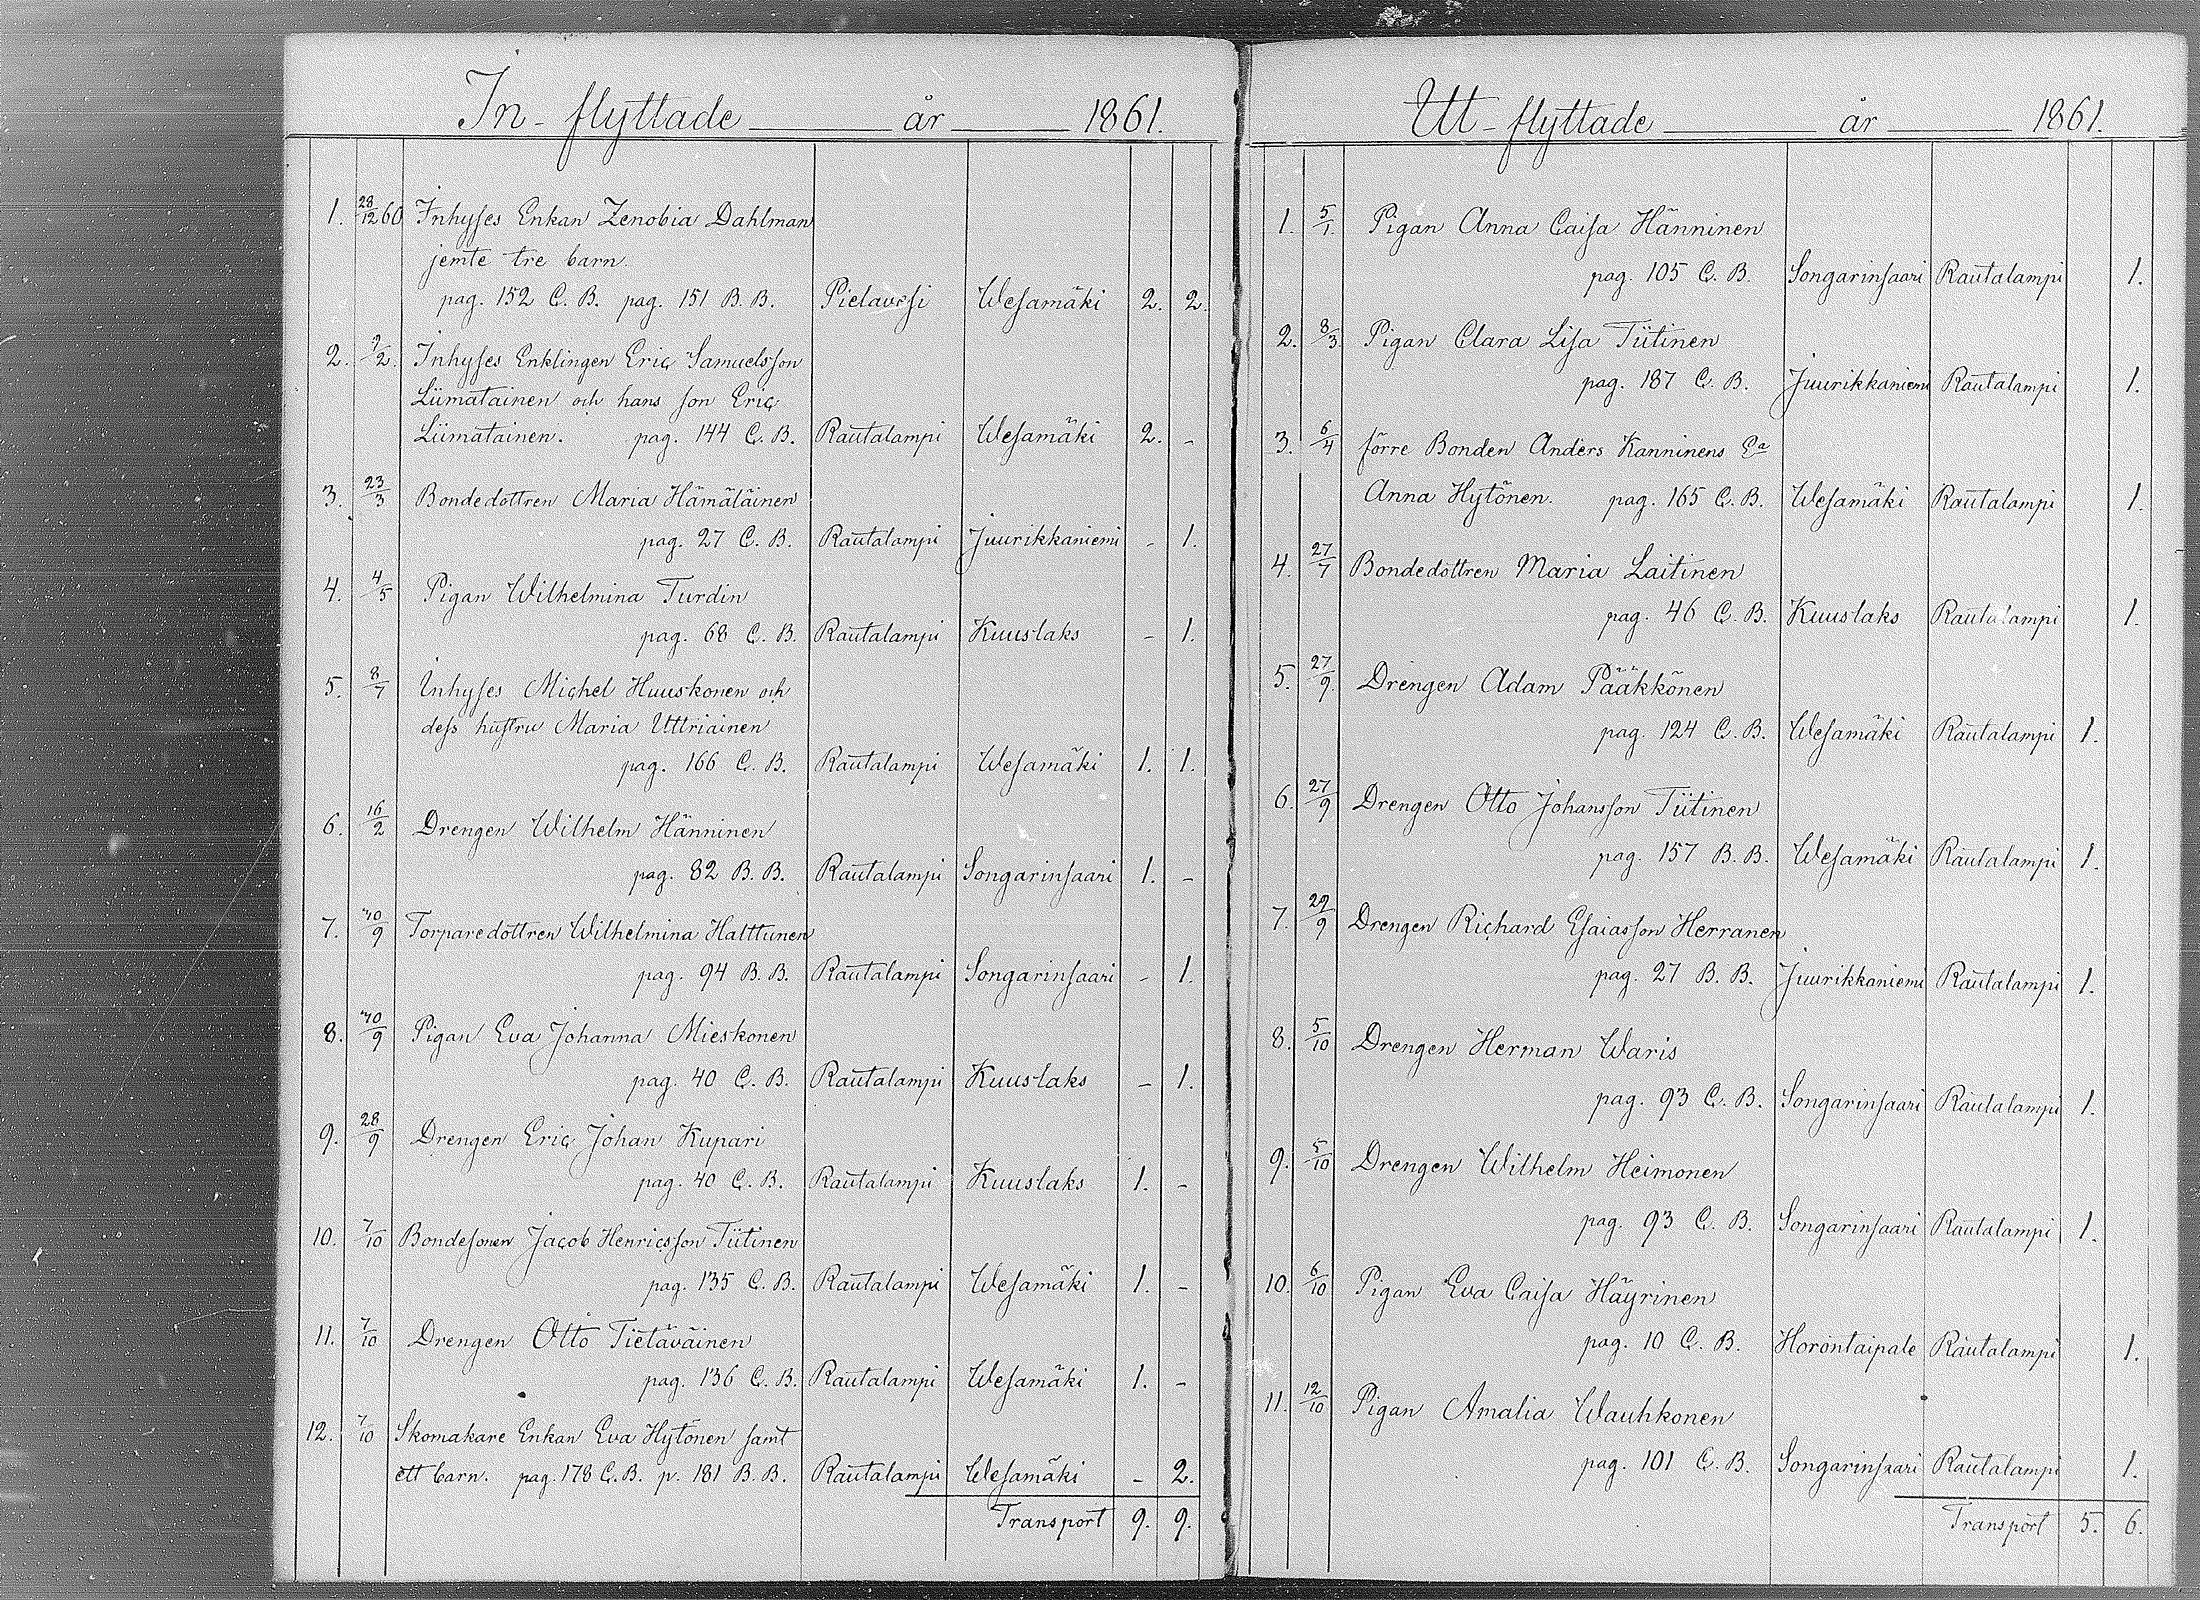 In-flyttade år 1861.
1. 28/12 60 Inhyses Enkan Zenobia Dahlman
jemte tre barn.
pag. 152 C. B. pag. 151 B. B. Pielavesi Wesamäki 2. 2.
2. 2/2. Inhyses Enklingen Eric Samuelsson
Liimatainen och hans son Eric
Liimatainen. pag. 144 C. B. Rautalampi Wesamäki 2. -
3. 23/3 Bondedottren Maria Hämäläinen
pag. 27 C. B. Rautalampi Juurikkaniemi - 1.
4. 4/5 Pigan Wilhelmina Turdin
pag. 68 C. B. Rautalampi Kuuslaks - 1.
5. 8/7 Inhyses Michel Huuskonen och
dess hustru Maria Uttriainen
pag. 166 C. B. Rautalampi Wesamäki 1. 1.
6. 16/2 Drengen Wilhelm Hänninen
pag. 82 B. B. Rautalampi Songarinsaari 1. -
7. /9 Torparedottren Wilhelmina Halttunen
pag. 94 B. B. Rautalampi Songarinsaari - 1.
8. /9 Pigan Eva Johanna Mieskonen
pag. 40 C. B. Rautalampi Kuuslaks - 1.
9. 28/9 Drengen Eric Johan Kupari
pag. 40 C. B. Rautalampi Kuuslaks 1. -
10. 7/10 Bondesonen Jacob Henricsson Tiitinen
pag. 135 C. B. Rautalampi Wesamäki 1. -
11. 7/10 Drengen Otto Tietäväinen
pag. 136 C. B. Rautalampi Wesamäki 1. -
12. 7/10 Skomakare Enkan Eva Hytönen samt
ett barn. pag. 178 C. B. p. 181 B. B. Rautalampi Wesamäki - 2.
Transport 9. 9.
Utt-flyttade år 1861.
1. 5/1. Pigan Anna Caisa Hänninen
pag. 105 C. B. Songarinsaari Rautalampi 1.
2. 8/3. Pigan Clara Lisa Tiitinen
pag. 187 C. B. Juurikkaniemi Rautalampi 1.
3. 6/4 förre Bonden Anders Kanninens Ea
Anna Hytönen. pag. 165 C. B. Wesamäki Rautalampi 1.
4. 27/7 Bondedottren Maria Laitinen
pag. 46 C. B. Kuuslaks Rautalampi 1.
5. 27/9. Drengen Adam Pääkkönen
pag. 124 C. B. Wesamäki Rautalampi 1.
6. 27/9 Drengen Otto Johansson Tiitinen
pag. 157 B. B. Wesamäki Rautalampi 1.
7. 29/9 Drengen Richard Esaiasson Herranen
pag. 27 B. B. Juurikkaniemi Rautalampi 1.
8. 5/10 Drengen Herman Waris
pag. 93 C. B. Songarinsaari Rautalampi 1.
9. 5/10 Drengen Wilhelm Heimonen
pag. 93 C. B. Songarinsaari Rautalampi 1.
10. 6/10 Pigan Eva Caisa Häyrinen
pag. 10 C. B. Horontaipale Rautalampi 1.
11. 12/10 Pigan Amalia Wauhkonen
pag. 101 C. B. Songarinsaari Rautalampi 1.
Transport 5. 6.